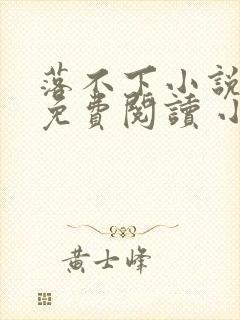 落不下小說
免費閱讀 小
黃士峰